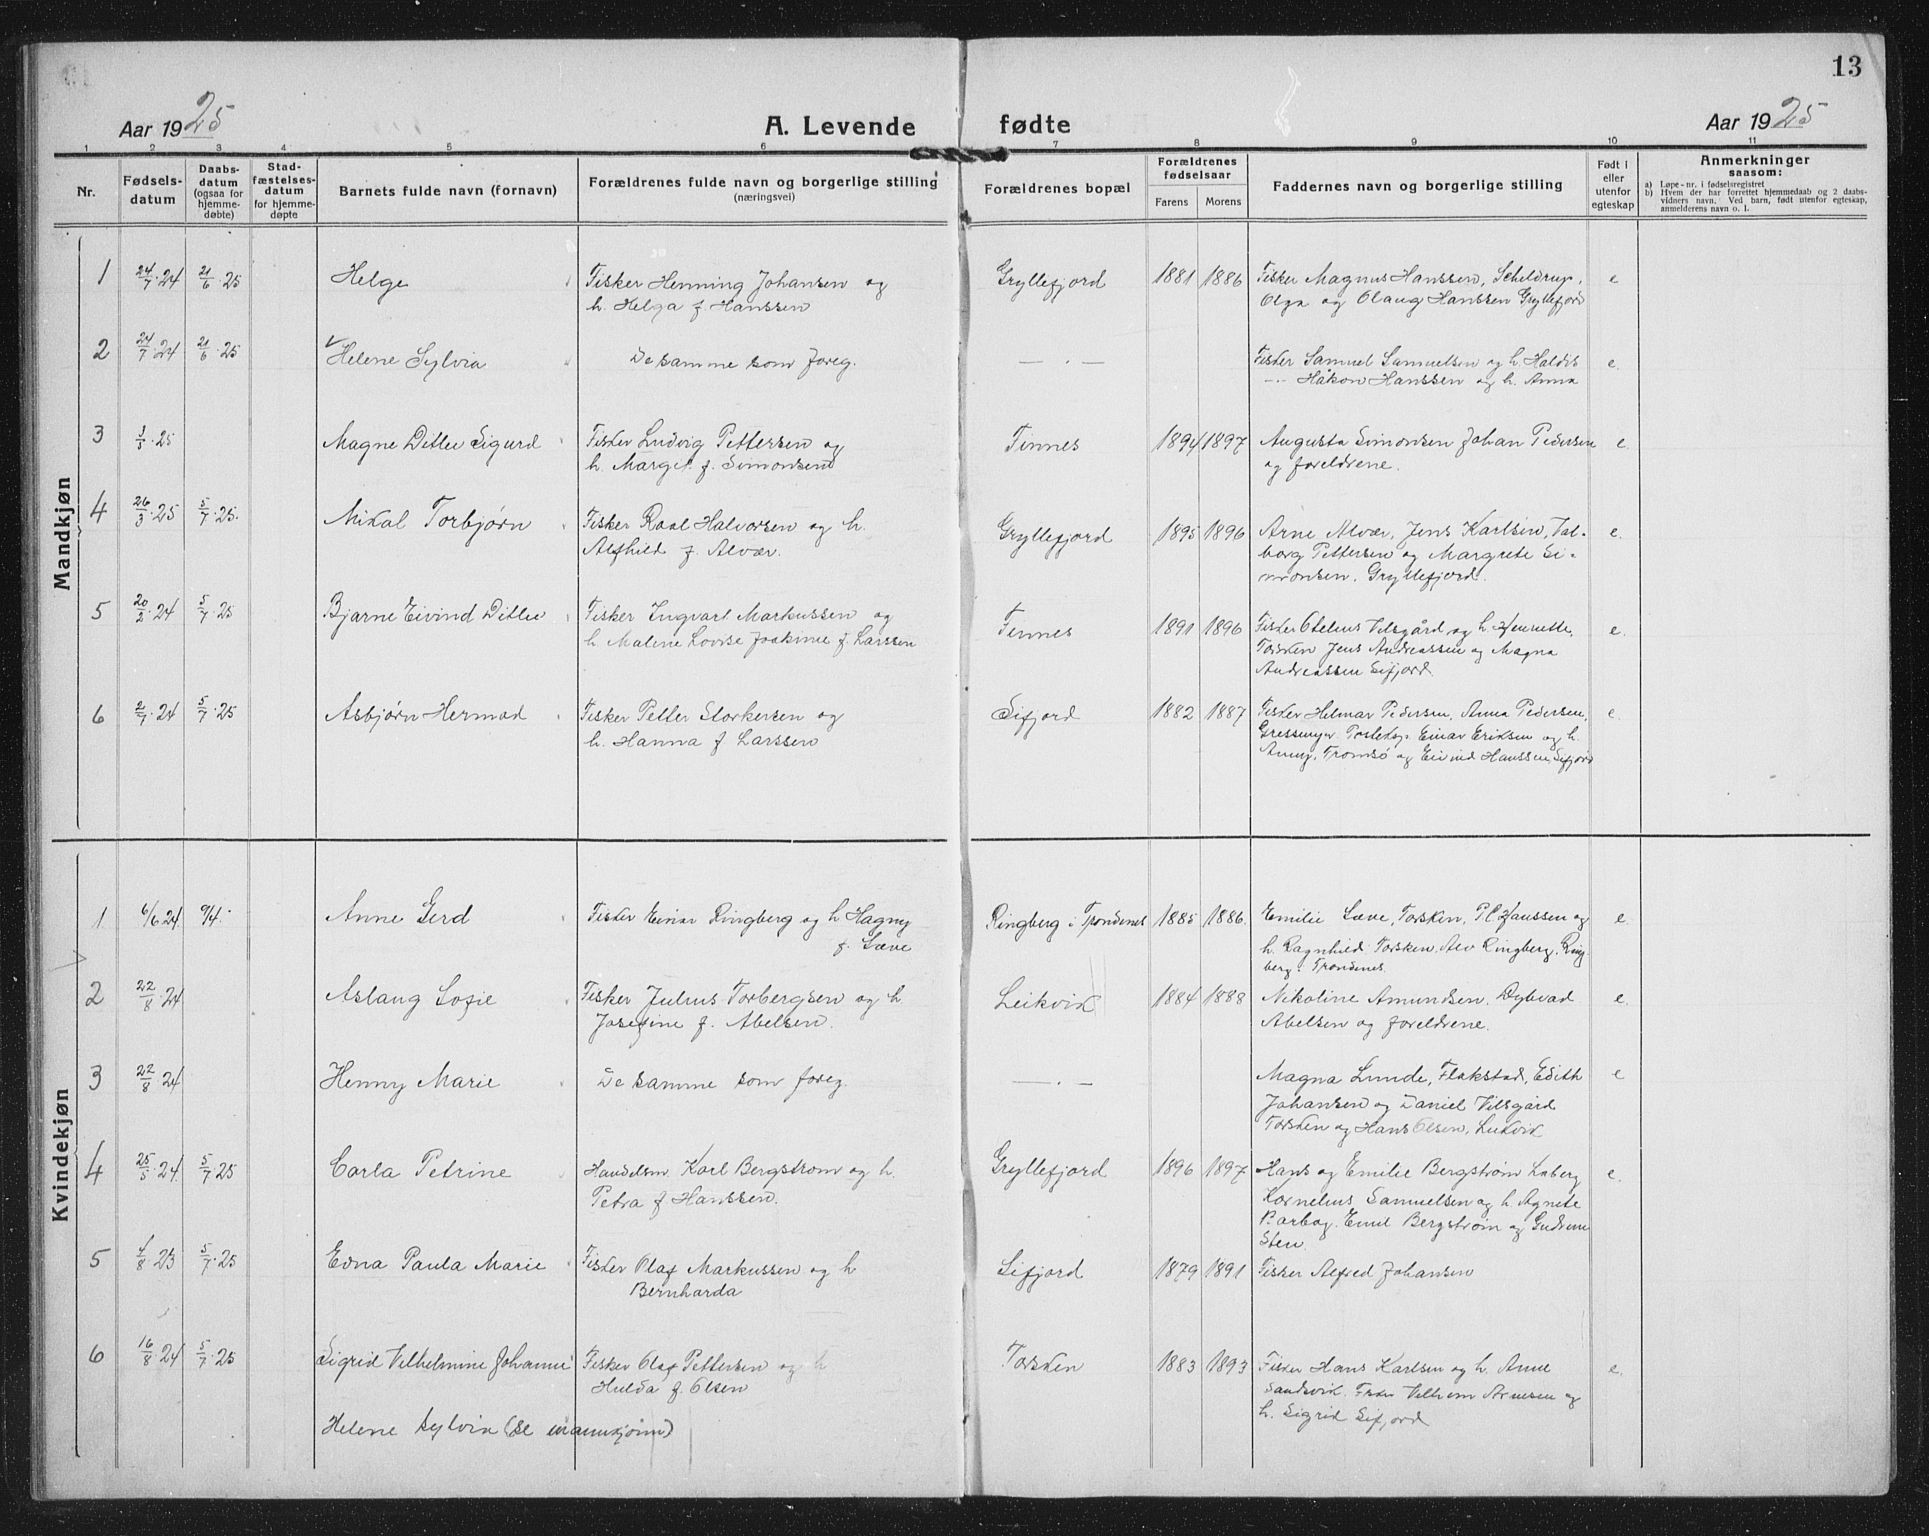 13
Aar 1925
A. Levende fødte
Aar 1925
1 2 3 4 5 6 7 8 9 10 11
Nr.
Fødsels-
datum
Daabs-
datum
(ogsaa for
hjemme-
døbte)
Stad-
fæstelses-
datum
for hjemme-
døpte
Barnets fulde navn (fornavn)
Forældrenes fulde navn og borgerlige stilling
(næringsvei)
Forældrenes bopæl
Forældrenes
fødselsaar
Farens Morens
Faddernes navn og borgerlige stilling
Født i
eller
utenfor
egteskap
Anmerkninger
saasom:
a) Løpe-nr. i fødselsregistret
b) Hvem der har forrettet hjemmedaab og 2 daabs-
vidners navn. Ved barn, født utenfor egteskap,
anmelderens navn o. l.
Mandkjøn
1 24/7.24 21/6.25 Helge Fisker Henning Johansen og Gryllefjord 1881 1886 Fisker Magnus Hanssen, Scheldrup, e
h. Helga f. Hanssen Olga og Olaug Hanssen Gryllefjord
2 24/7.24 21/6.25 Helene Sylvia De samme som foreg. — . — Fisker Samuel Samuelsen og h. Haldis e.
— Håkon Hanssen og h. Anna
3 3/5.25 Magne Ditlev Sigurd Fisker Ludvig Pettersen og Finnes 1894 1897 Augusta Simonsen Johan Pedersen e.
h. Margit f. Simonsen og foreldrene.
4 26/3.25 5/7.25. Mikal Torbjørn Fisker Roal Halvorsen og h. Gryllefjord 1895 1896 Arne Alvær, Jens Karlsen, Val- e.
Alfhild f. Alvær. borg Pettersen og Margrete Si-
monsen, Gryllefjord.
5 20/2.24 5/7.25 Bjarne Eivind Ditlev Fisker Ingvart Markussen og Finnes 1891 1896 Fisker Otelius Vilsgård og h. Henrette, e.
h. Malene Lovise Joakime f. Larssen Torsken Jens Andreassen og Magna
Andreassen Sifjord.
6 2/7.24 5/7.25 Asbjørn Hermod Fisker Petter Storkersen og Sifjord 1882 1887 Fisker Helmar Pedersen, Anna Pedersen, e.
h. Hanna f Larssen Einar Eriksen og h.
Anny, Tromsø og Eivind Hanssen, Sifjord
Kvindekjøn
1 6/6.24 9/4. Anne Gerd Fisker Einar Ringberg og h Hagny Ringberg i Trondenes 1885 1886. Emilie Sæve, Torsken, P.C. Hanssen og e.
f. Sæve h. Ragnhild Torsken. Alv Ringberg, Ring
berg. Trondenes.
2 22/8.24 Aslaug Sofie Fisker Julius Torbergsen og h Leikvik 1884 1888 Nikoline Amundsen, Dybvad e.
Josefine f. Abelsen. Abelsen og foreldrene.
3 22/8.24 Henny Marie De samme som foreg. — . — Magna Lunde, Flakstad, Edith e
Johansen og Daniel Vilsgård
Torsken og Hans Olsen, Leikvik
4 25/5.24. 5/7.25 Carla Petrine Handelsm. Karl Bergstrøm og h. Gryllefjord 1896 1897 Hans og Emilie Bergstrøm Laberg e.
Petra f Hanssen. Kornelius Samuelsen og h Agnete
Emil Bergstrøm og
Sten.
5 1/8.23 5/7.25 Edna Paula Marie Fisker Olaf Markussen og h Sifjord 1879 1891 Fisker Alfred Johansen
Bernharda
6 16/8.24 5/7.25 Sigrid Vilhelmine Johanne Fisker Olaf Pettersen og h Torsken 1883 1893 Fisker Hans Karlsen og h. Anne e.
Hulda f. Olsen Sandsvik. Fisker Vilhelm Arnesen og
h. Sigrid Sifjord
Helene Sylvia (se mannkjønn)